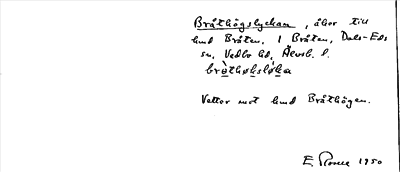 Bråthögslyckan, åker till
hmd Bråten. 1 Bråten, Dals-Eds
sn, Vedbo hd, Älvsb. l.
bròthøksløka
Vetter mot hmd Bråthögen.
E. 1950